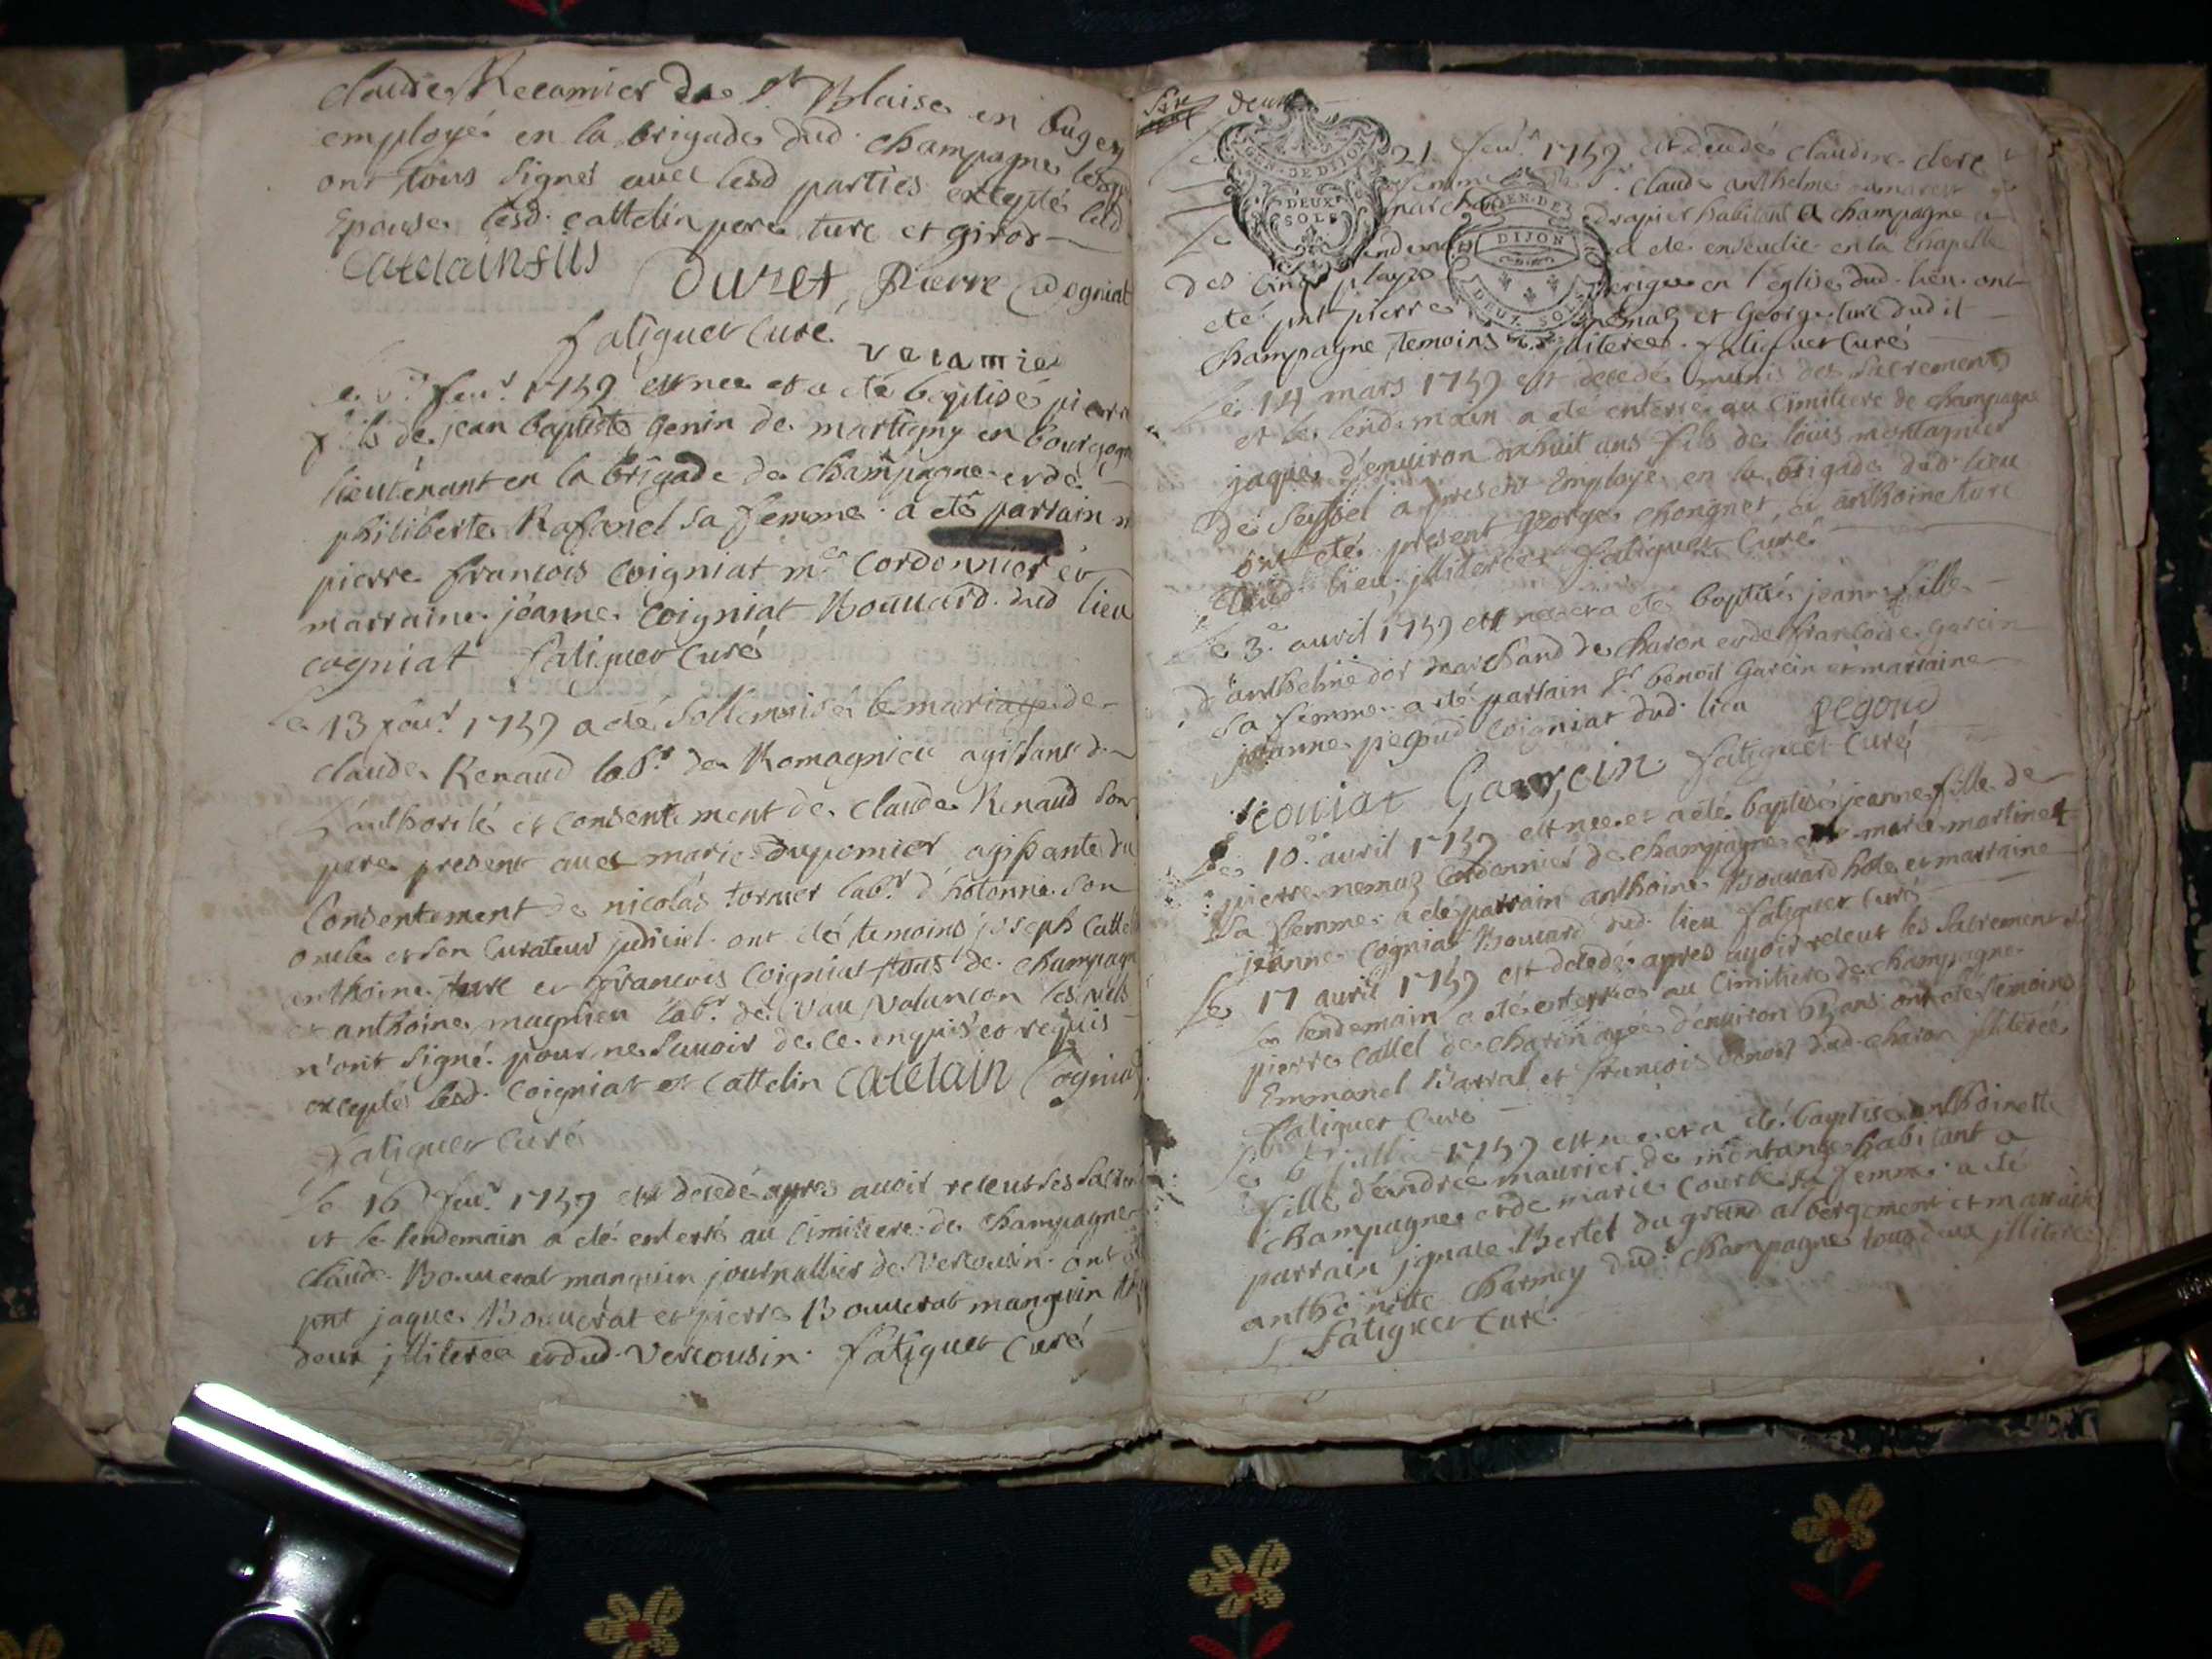 claude Recamier de St Blaise en Bugey
employé en la brigade dud. champagne
ont tous signés avec lesd parties excepté
Epouse lesd. cattelin pere turc et giros
Catelain fils Duret Pierre Cogniat
fatiguet Curé
recamier
fevr 1759 est nee et a eté baptisé pierre
fils de jean baptiste genin de martigny en bourgogne
lieutenant en la brigade de champagne et de
philiberte Rafanel sa femme a eté parrain
pierre francois Coigniat me Cordonnier et
marraine jeanne Coigniat Bouuard dud lieu
cogniat fatiguet Curé
le 13 fevr 1759 a eté sollemnisé le mariage de
claude Renaud labr de Romagnieu agissant de
l'authorité et consentement de claude Renaud son
pere present avec marie dupomier agissante du
Consentement de nicolas tornier labr d'hotonne son
oncle et son Curateur judiciel ont eté temoins joseph
anthoine turc et francois Coigniat tous de champagne
et anthoine magnieu labr de Vau Valancon lesquels
n'ont signé pour ne savoir de ce enquis et requis
excepté lesd. Coigniat et Cattelin Catelain Cogniat
fatiguet Curé
le 16 fevr 1759 est decedé apres avoir receut ses
et le lendemain a eté enterré au Cimitiere de champagne
claude Bouuerat manguin journallier de Vercousin ont
pnt jaque Bouuerat et pierre Bouuerat manguin
deux illiterés et dud. Vercousin fatiguet Curé
deux
GEN. DE DIJON
DEUX SOLS
GEN. DE DIJON
DEUX SOLS
le 21 fevr 1759 est decedé claudine clerc
femme claude anthelme
drapier habitant a champagne
a eté ensevelie en la Chapelle
des Cinq playes en l'eglise dud. lieu ont
eté pnt pierre et George turc dudit
champagne temoins illiterés fatiguet Curé
le 14 mars 1759 est decedé munis des sacrements
et le lendemain a eté enterré au Cimitiere de champagne
jaque d'environ dixhuit ans fils de louis montagnier
de seyssel a present Employé en la brigade dud lieu
ont eté present george chongnet et anthoine turc
dud. lieu illiterés fatiguet Curé
le 3e avril 1759 est nee et a eté baptisé jeanne fille
d'anthelme dor marchand de charon et de francoise garcin
sa femme a eté parrain Sr benoit Garcin et marraine
jeanne pegoud Coigniat dud. lieu pegoud
Garcin fatiguet Curé
le 10e avril 1759 est nee et a eté baptisé jeanne fille de
pierre nemoz Cordonnier de champagne et marie martinet
sa femme a eté parrain anthoine Bouuard hote et marraine
jeanne Cogniat Bouuard dud. lieu fatiguet Curé
le 17 avril 1759 est decedé apres avoir receut les sacrements
le lendemain a eté enterré au Cimitiere de champagne
pierre Callet de charon agé d'environ ans ont eté temoins
Emmanel Barral et francois benoit dud. charon illiterés
fatiguet Curé
le 1759 est nee et a eté baptisé anthoinette
fille d'andré maurier de montange habitant a
champagne et de marie Courbe sa femme a eté
parrain ignace Bertet du grand abergement et marraine
anthoinette charmey dud. champagne tous deux illiterés
fatiguet Curé